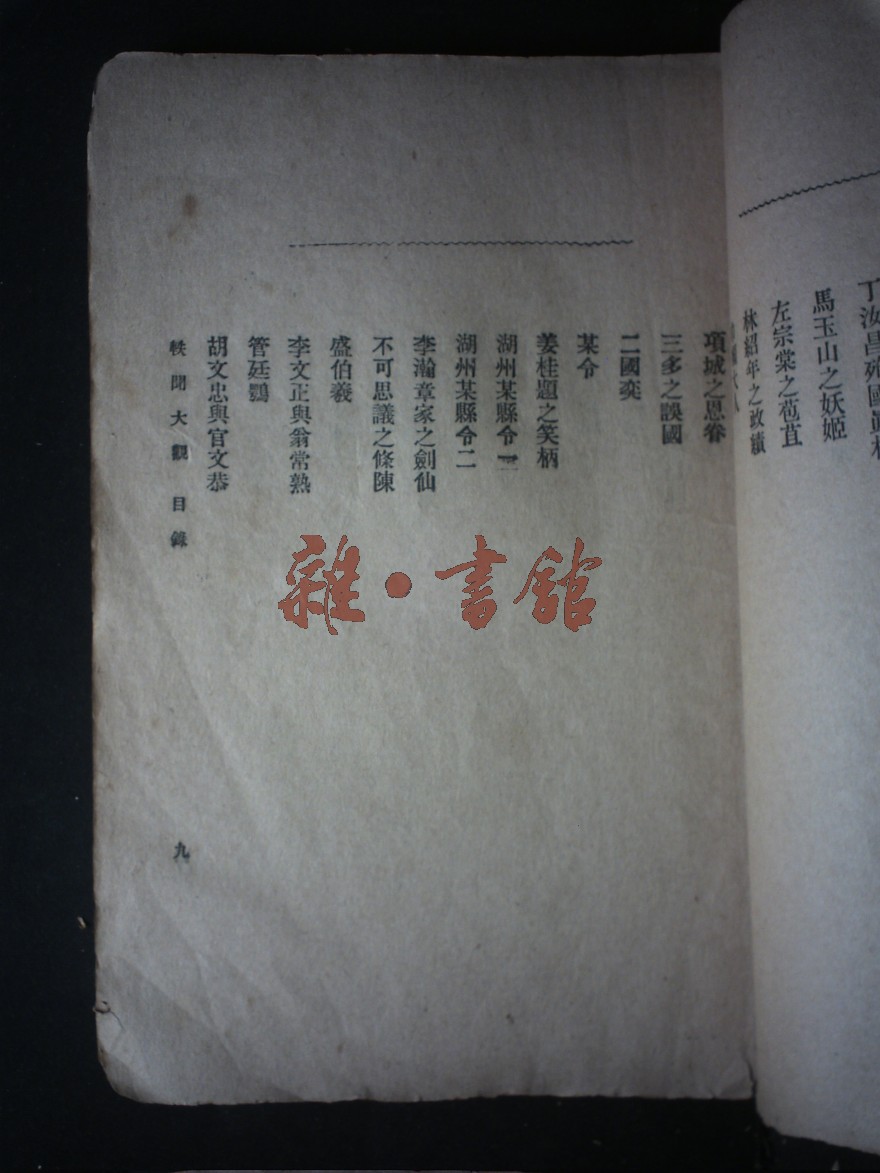 馬玉山之妖姬
左宗棠之苞苴
林紹年之政績
項城之恩眷
三多之誤國
二國奕
某令
姜桂題之笑柄
湖州某縣令一
湖州某縣令二
李瀚章家之劍仙
不可思議之條陳
盛伯羲
李文正與翁常熟
管廷鶚
胡文忠與官文恭
軼聞大觀 目錄
九
雜·書館